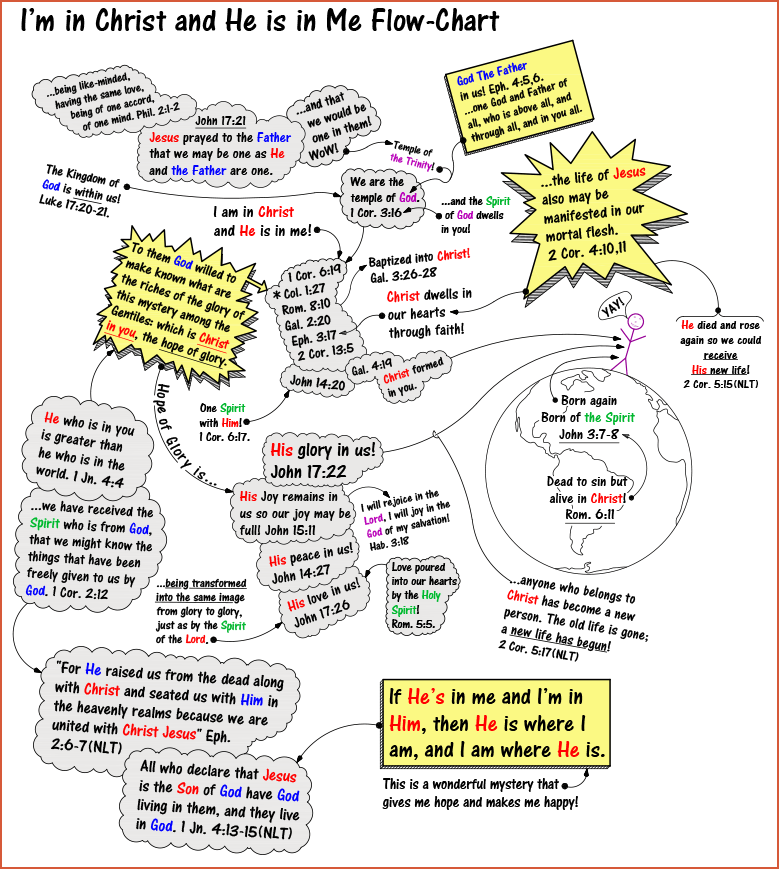 I'm in Christ and He is in Me Flow-Chart
...being like-minded,
having the same love,
being of one accord,
of one mind. Phil. 2:1-2
John 17:21
Jesus prayed to the Father
that we may be one as He
and the Father are one.
...and that
we would be
one in them!
WoW!
Temple of
the Trinity!
God The Father
in us! Eph. 4:5,6.
...one God and Father of
all, who is above all, and
through all, and in you all.
The Kingdom of
God is within us!
Luke 17:20-21.
We are the
temple of God.
1 Cor. 3:16
...and the Spirit
of God dwells
in you!
...the life of Jesus
also may be
manifested in our
mortal flesh.
2 Cor. 4:10,11
I am in Christ
and He is in me!
To them God willed to
make known what are
the riches of the glory of
this mystery among the
Gentiles: which is Christ
in you, the hope of glory.
1 Cor. 6:19
* Col. 1:27
Rom. 8:10
Gal. 2:20
Eph. 3:17
2 Cor. 13:5
Baptized into Christ!
Gal. 3:26-28
Christ dwells in
our hearts
through faith!
YAY!
He died and rose
again so we could
receive
His new life!
2 Cor. 5:15(NLT)
John 14:20
Gal. 4:19
Christ formed
in you.
One Spirit
with Him!
1 Cor. 6:17.
Hope of Glory is...
Born again
Born of the Spirit
John 3:7-8
Dead to sin but
alive in Christ!
Rom. 6:11
He who is in you
is greater than
he who is in the
world. 1 Jn. 4:4
His glory in us!
John 17:22
His Joy remains in
us so our joy may be
full! John 15:11
I will rejoice in the
Lord, I will joy in the
God of my salvation!
Hab. 3:18
...we have received the
Spirit who is from God,
that we might know the
things that have been
freely given to us by
God. 1 Cor. 2:12
His peace in us!
John 14:27
His love in us!
John 17:26
Love poured
into our hearts
by the Holy
Spirit!
Rom. 5:5.
...being transformed
into the same image
from glory to glory,
just as by the Spirit
of the Lord.
...anyone who belongs to
Christ has become a new
person. The old life is gone;
a new life has begun!
2 Cor. 5:17(NLT)
"For He raised us from the dead along
with Christ and seated us with Him in
the heavenly realms because we are
united with Christ Jesus" Eph.
2:6-7(NLT)
If He's in me and I'm in
Him, then He is where I
am, and I am where He is.
All who declare that Jesus
is the Son of God have God
living in them, and they live
in God. 1 Jn. 4:13-15(NLT)
This is a wonderful mystery that
gives me hope and makes me happy!